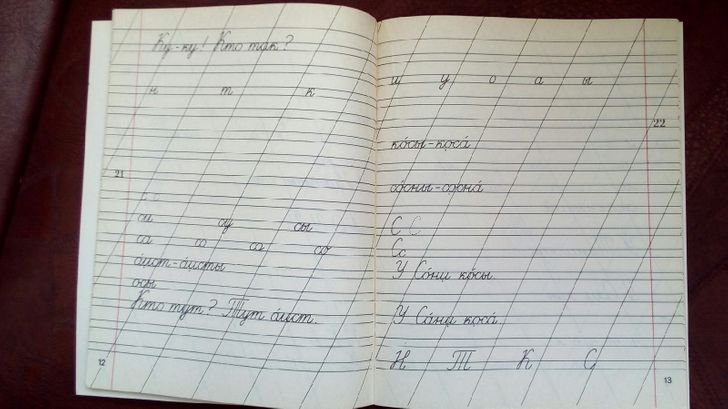 Ку-ку! Кто так?
н т к
21
с с
си су сы
са со са со
а́ист-а́исты
осы
Кто тут? Тут а́ист.
12
и у о а ы
22
ко́сы-коса́
со́сны-сосна́
С С
Сс
У Со́ни ко́сы.
У Са́ни коса́.
Н Т К С
13